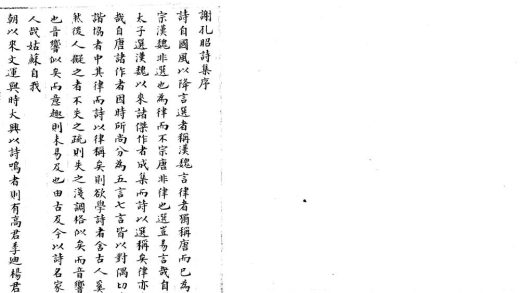 謝孔昭詩集序
詩自國風以降言選者稱漢魏言律者獨稱唐而已為
宗漢魏非選也為律而不宗唐非律也選豈易言哉自
太子選漢魏以來諸傑作者成集而詩以選稱矣律亦
哉自唐諸作者因時所尚分為五言七言皆以對偶切
諧協者中其律而詩以律稱矣則欲學詩者舍古人奚
然後人擬之者不失之疏則失之淺調格似矣而音響
也音響似矣而意趣則未易及也由古及今以詩名家
人哉姑蘇自我
朝以來文運與時大興以詩鳴者則有高君季迪楊君